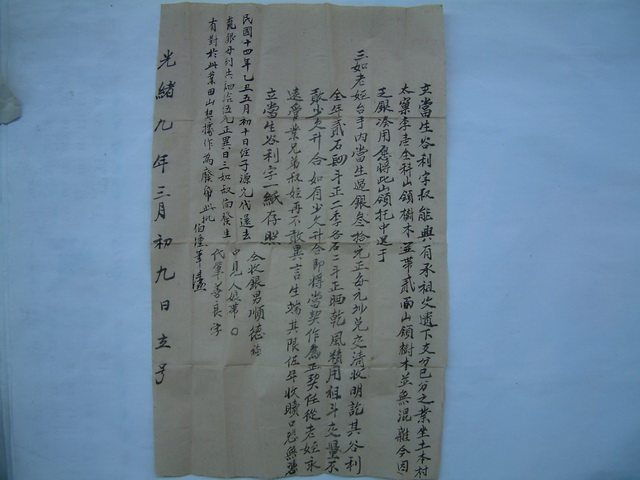 立當生谷利字叔能興有承祖父遺下支分己分之業坐土本村
太窠李老全科山嶺樹木並帶貳面山嶺樹木並無混雜今因
乏銀湊用愿將此山嶺托中送于
三如老姪台手內當生過銀叁拾元正每元九兌交清收明訖其谷利
全年貳石肆斗正二季各石二斗正晒乾風精用租斗交量不
敢少欠升合如有少欠升合即將當契作為正契任從老姪永
遠管業兄弟叔姪再不敢異言生端其限伍年收贖口恐無憑
立當生谷利字一紙存照
仝收銀男順德
中見人
代筆善良字
民國十四年乙丑五月初十日侄子源光代還去
有對於此業田山契據作為廢帋此批
光緒九年三月初九日立字